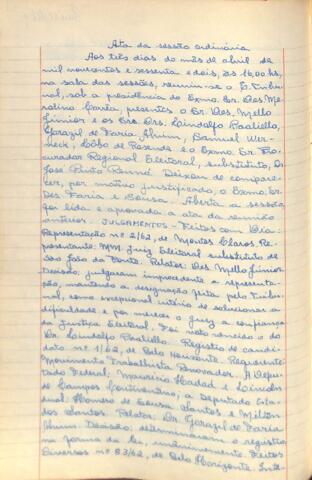 Ata da sessão ordinária
Aos três dias do mês de abril de
mil novecentos e sessenta e dois, às 16,00 hs,
na sala das sessões, reuniu-se o E. Tribu-
nal, sob a presidência do Exmo. Sr. Des. Me-
rolino Corrêa, presentes o Sr. Des. Mello
Júnior e os Srs. Drs. Lindolfo Paoliello,
Gorazil de Faria Alvim, Samuel Wer-
neck, Lôbo de Rezende e o Exmo. Sr. Pro-
curador Regional Eleitoral, substituto, Dr.
José Pinto Renó. Deixou de compare-
cer, por motivo justificado, o Exmo. Sr.
Des. Faria e Sousa. Aberta a sessão,
foi lida e aprovada a ata da reunião
anterior. JULGAMENTOS - Feitos com Dia:
Representação nº 2/62, de Montes Claros. Re-
presentante: MM. Juiz Eleitoral substituto de
São João da Ponte. Relator: Des. Mello Júnior.
Decisão: julgaram improcedente a representa-
ção, mantendo a designação feita pelo Tribu-
nal, como excepcional critério de solucionar a
dificuldade e por merecer o juiz a confiança
da Justiça Eleitoral. Foi voto vencido o do
Dr. Lindolfo Paoliello. Registro de candi-
dato nº 1/62, de Belo Horizonte. Requerente:
Movimento Trabalhista Renovador. A Depu-
tado Federal: Maurício Hadad e Lincoln
de Campos Continentino; a Deputado Esta-
dual: Homero de Sousa Santos e Milton
dos Santos. Relator: Dr. Gorazil de Faria
Alvim. Decisão: determinaram o registro
na forma da lei, unânimemente. Feitos
Diversos nº 83/62, de Belo Horizonte. Inte-